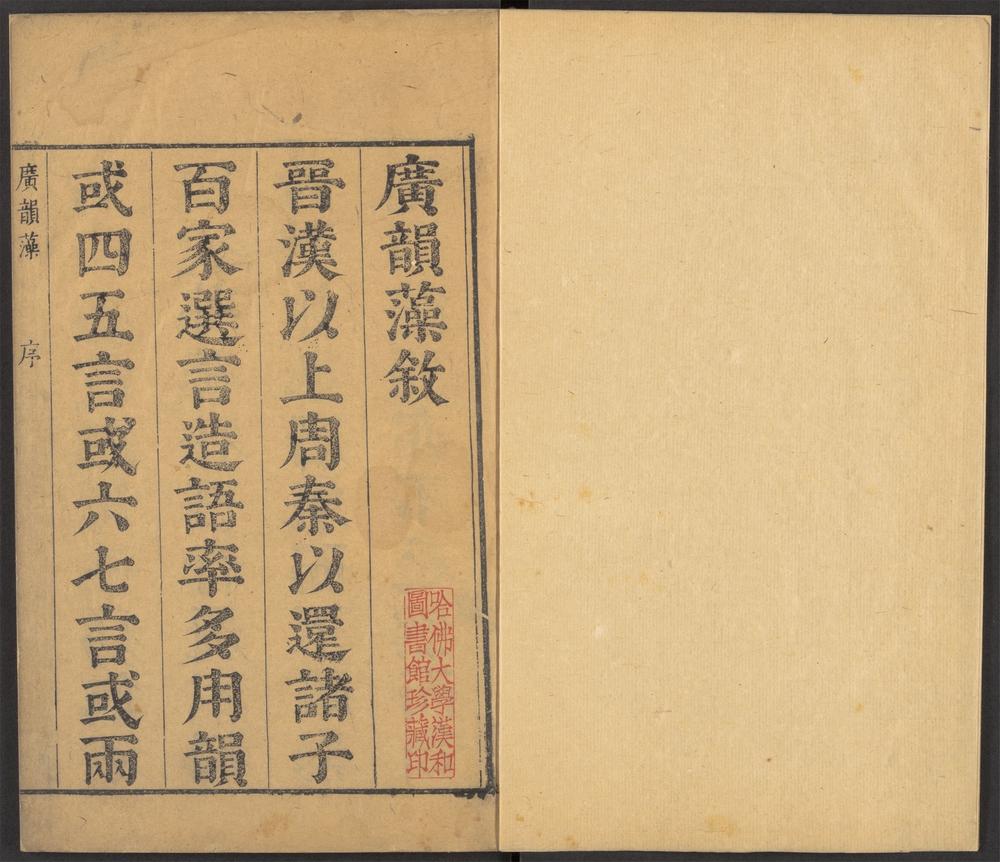 廣韻藻敘
晉漢以上周秦以還諸子
百家選言造語率多用韻
或四五言或六七言或兩
廣韻藻 序
哈佛大學漢和
圖書館珍藏印